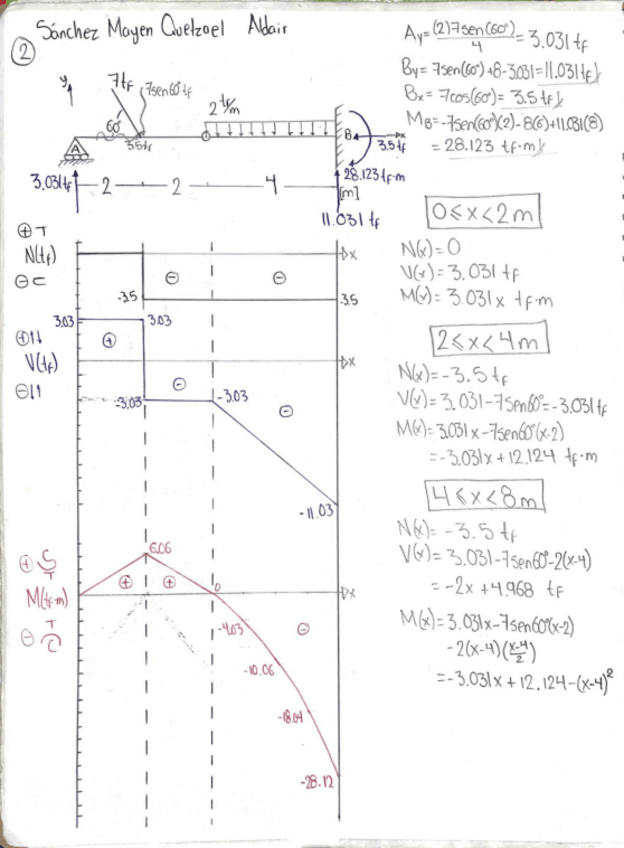 Sánchez Mayen Quetzael Aldair
2
Ay=(2)7sen(60°)/4=3.031tf
By=7sen(60°)+8-3.031=11.031tf
Bx=7cos(60°)=3.5tf
MB=-7sen(60°)(2)-8(6)+11.031(8)
=28.123 tf·m
y
7tf
7sen60°tf
60°
3.5tf
2 tf/m
A
B
x
3.5tf
3.031tf
2
2
4
[m]
28.123tf·m
11.031 tf
0≤x<2m
N(x)=0
V(x)=3.031tf
M(x)=3.031x tf·m
2≤x<4m
N(x)=-3.5tf
V(x)=3.031-7sen60°=-3.031tf
M(x)=3.031x-7sen60°(x-2)
=-3.031x+12.124 tf·m
4≤x<8m
N(x)=-3.5tf
V(x)=3.031-7sen60°-2(x-4)
=-2x+4.968 tf
M(x)=3.031x-7sen60°(x-2)
-2(x-4)(x-4/2)
=-3.031x+12.124-(x-4)²
+ T
N(tf)
- C
x
-3.5
-
-
-3.5
3.03
3.03
+
V(tf)
x
-
-3.03
-3.03
-
-11.03
+ C
T
M(tf·m)
- T
C
6.06
+
+
0
x
-4.03
-
-10.06
-18.04
-28.12